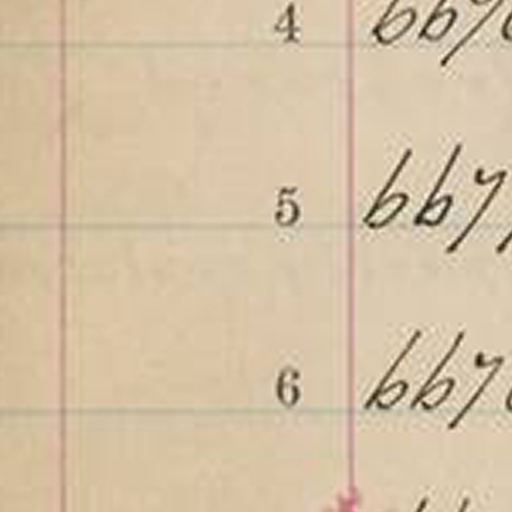 4 667
5 667
6 667